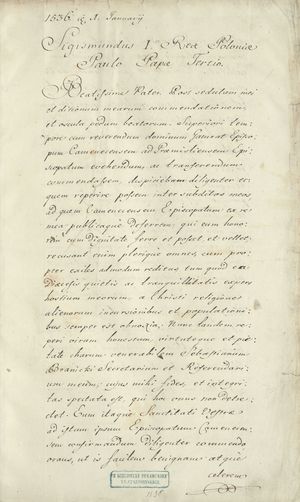 1536. d. 1. Januarij
Sigismundus I. Rex Poloniæ
Paulo Papæ Tertio.
Beatissime Pater. Post sedulam mei
et ditionum mearum commendationem,
et oscula pedum beatorum. Superiori tem-
pore cum reverendum dominum Gamrat Episco-
pum Camenecensem ad Præmisliensem Epi-
scopatum evehendum, ac transferendum
commendassem, dispiciebam diligenter ec-
quem reperire possem inter subditos meos
ad quem Camenecensem Episcopatum ex re
mea publicaque deferrem: qui eum hono-
rem cum dignitate ferre et posset et vellet,
recusant enim plerique omnes, cum prop-
ter exiles admodum reditus tum quod ea
Diœcesis quietis ac tranquillitatis expers
hostium meorum, a Christi religione
alienorum incursionibus et population-
ibus semper est obnoxia. Nunc tandem re-
peri virum honestum, virtuteque et pie-
tate charum venerabilem Sebastianum
Branicki Secretarium et Referendari-
um meum, cujus mihi fides, et integri-
tas spectata est, qui hoc onus non detre-
ctet. Eum itaque Sanctitati Vestræ
ad istum ipsum Episcopatum Camenecen-
sem confirmandum diligenter commendo
orans, ut is facilem benignam atque
celerem
BIBLIOTHEQUE POLONAISE
1536